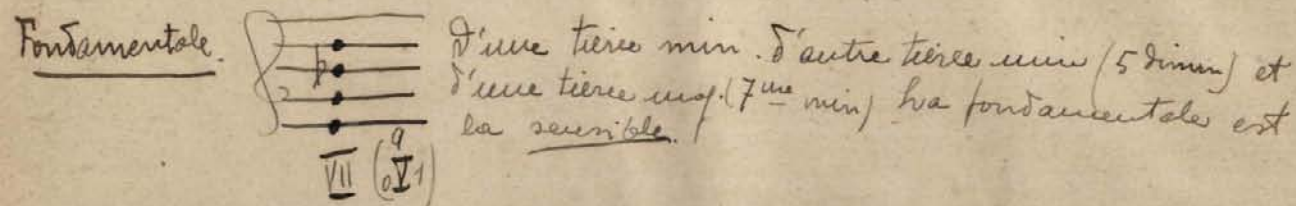 Fondamentale. D'une tierce min. d'autre tierce min (5 dimin) et
d'une tierce maj. (7me min) La fondamentale est
la sensible.
9
VII (0V1)